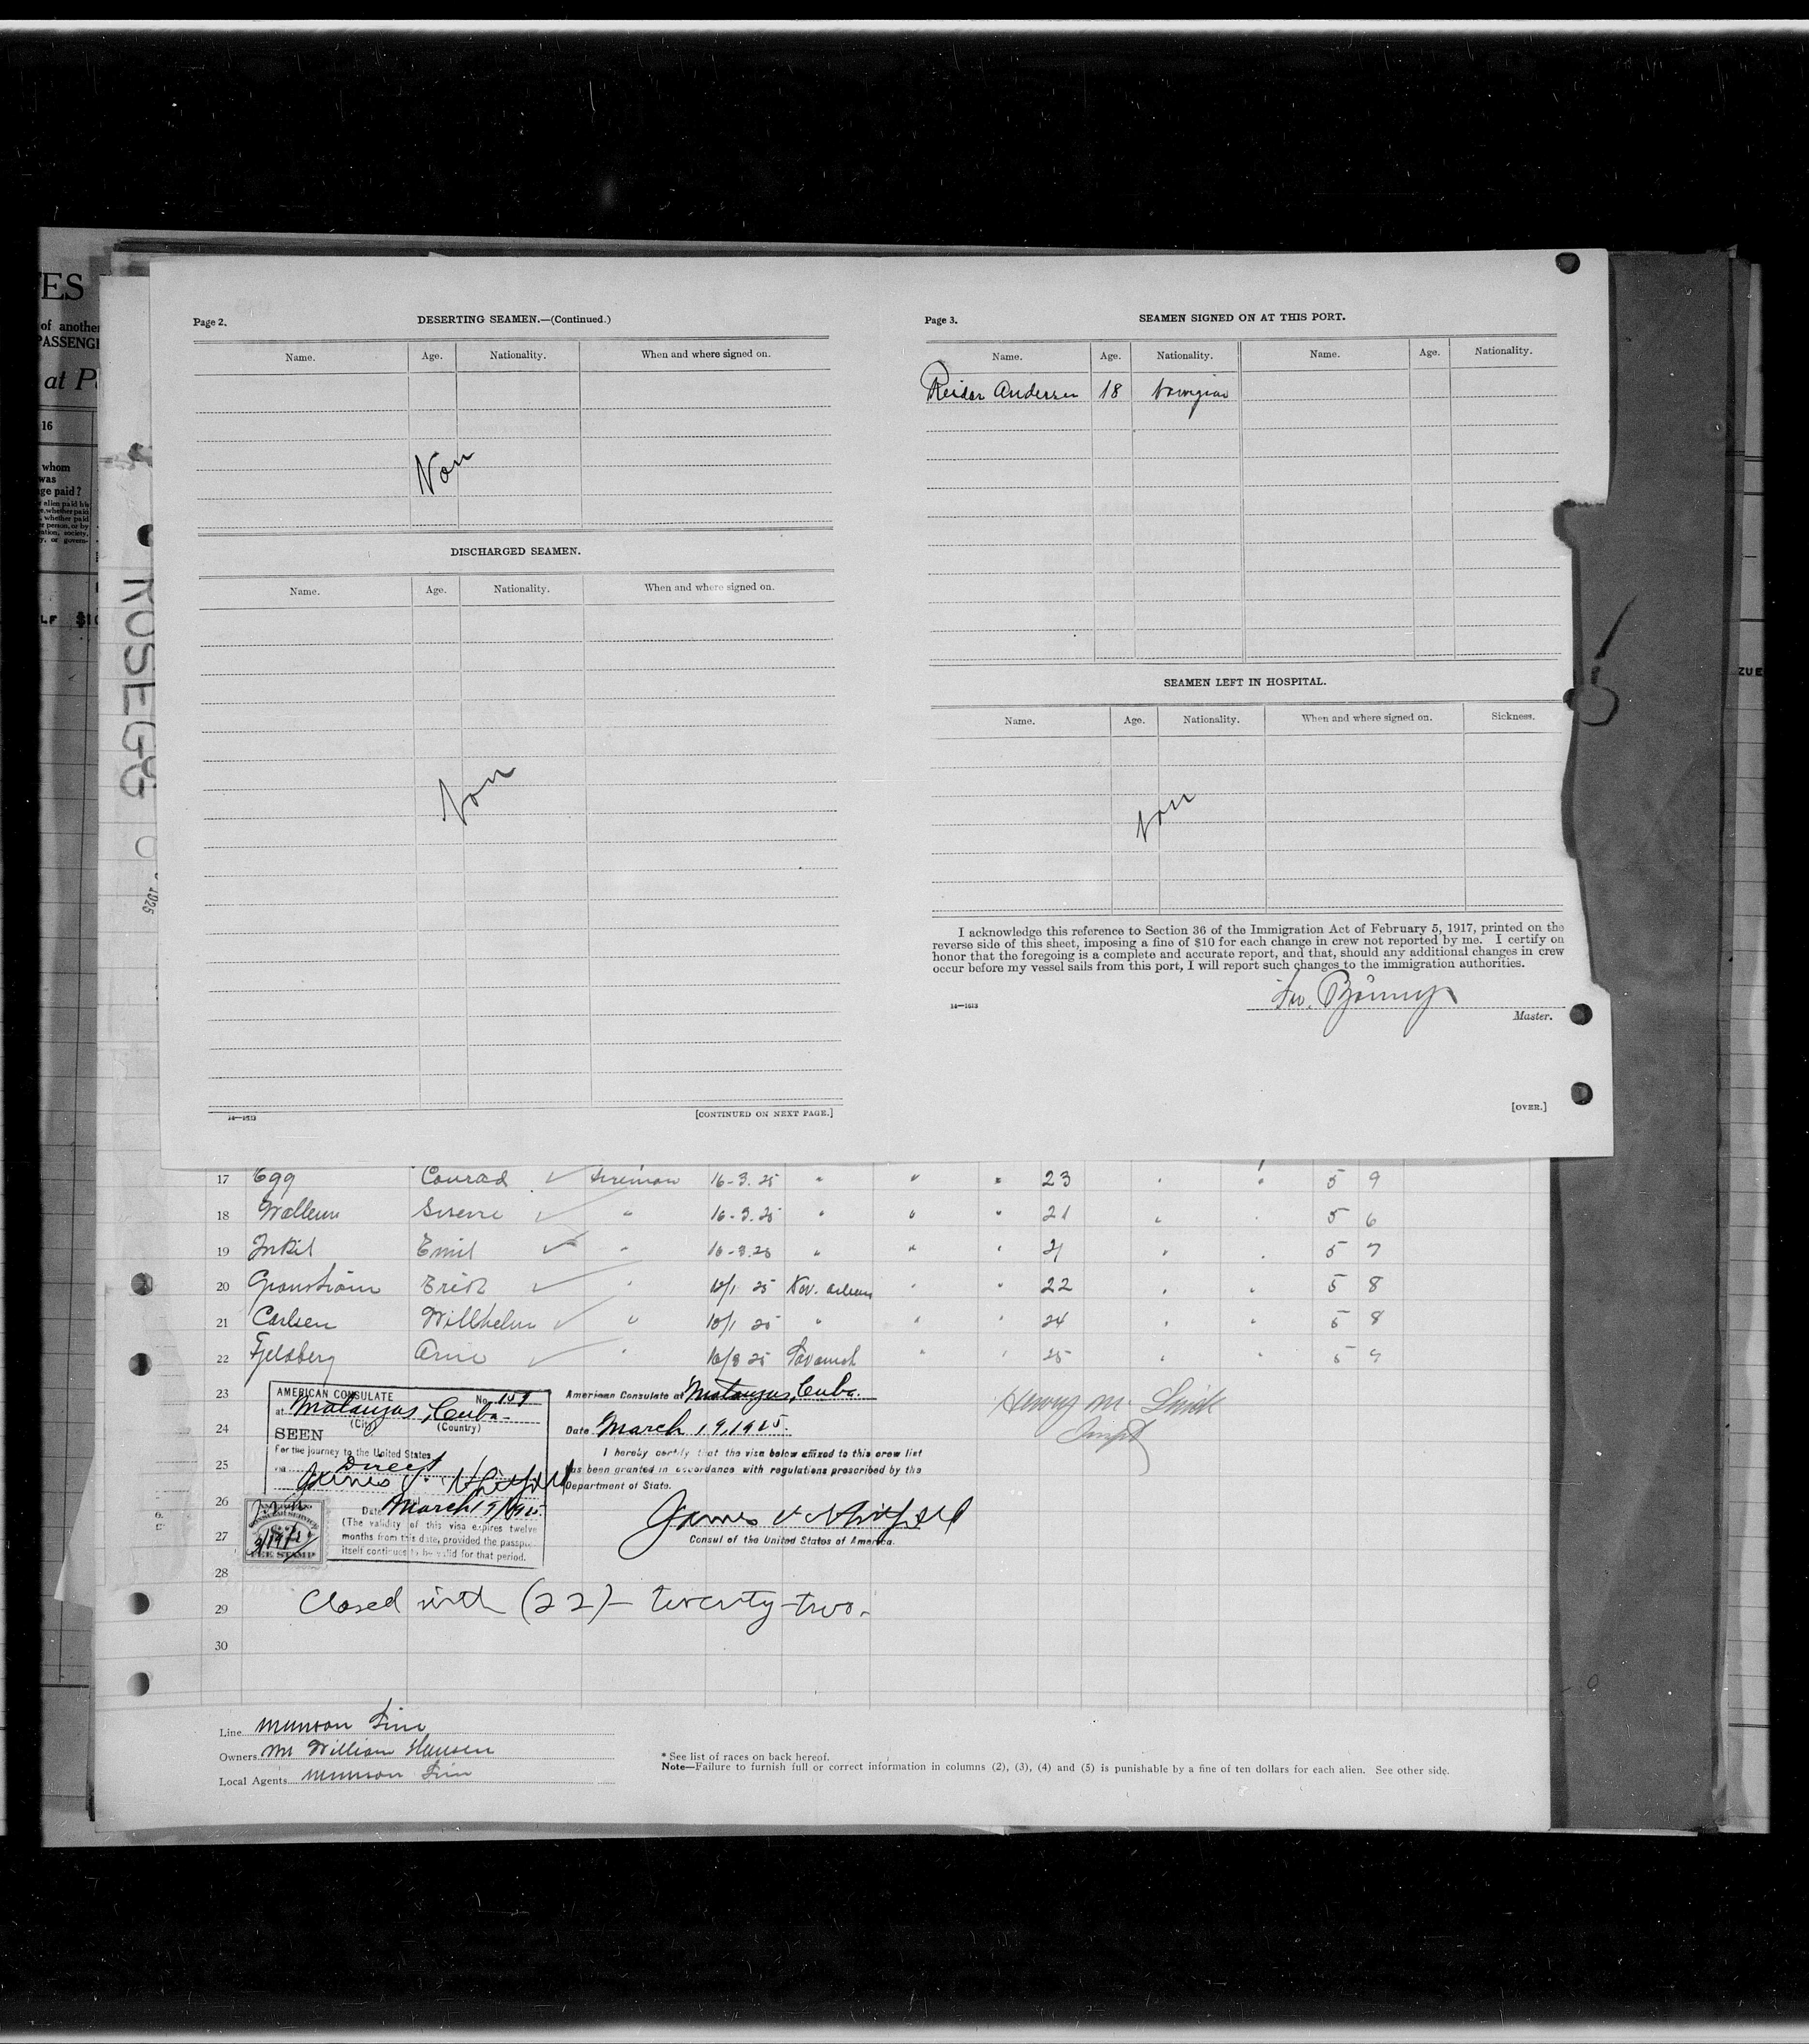 TES
of another
PASSENGE
at P
16
whom
was
ge paid?
LF $10
ROSEGG
1925
ZUE
Page 2.
DESERTING SEAMEN.—(Continued.)
Name. Age. Nationality. When and where signed on.
Non
DISCHARGED SEAMEN.
Name. Age. Nationality. When and where signed on.
Non
14—1513
[CONTINUED ON NEXT PAGE.]
Page 3.
SEAMEN SIGNED ON AT THIS PORT.
Name. Age. Nationality. Name. Age. Nationality.
Reidar Andersen 18 Norwegian
SEAMEN LEFT IN HOSPITAL.
Name. Age. Nationality. When and where signed on. Sickness.
Non
I acknowledge this reference to Section 36 of the Immigration Act of February 5, 1917, printed on the
reverse side of this sheet, imposing a fine of $10 for each change in crew not reported by me. I certify on
honor that the foregoing is a complete and accurate report, and that, should any additional changes in crew
occur before my vessel sails from this port, I will report such changes to the immigration authorities.
14—1513
Master.
[OVER.]
17 Egg Conrad fireman 16-3.25 " " " 23 " " 5 9
18 16-3.25 " " " 21 " " 5 6
19 Emil " 16-3.25 " " " 21 " " 5 7
20 Erik " 12/1 25 " " 22 " " 5 8
21 Carlsen Willhelm " 10/1 25 " " " 24 " " 5 8
22 Fjeldberg Arne " 16/3 25 Savannah " " 25 " " 5 9
23
24
25
26
27
28
29
30
AMERICAN CONSULATE No. 157
at Matanzas, Cuba.
(City) (Country)
SEEN
For the journey to the United States
via Direct
Date March 19, 1925
(The validity of this visa expires twelve
months from this date, provided the passport
itself continues to be valid for that period.
CONSULAR SERVICE
FEE STAMP
American Consulate at Matanzas, Cuba.
Date March 19, 1925.
I hereby certify that the visa below affixed to this crew list
has been granted in accordance with regulations prescribed by the
Department of State.
Consul of the United States of America.
Henry M.
Closed with (22) — twenty-two.
Line Munson Line
Owners Mr William Hansen
Local Agents Munson Line
* See list of races on back hereof.
Note—Failure to furnish full or correct information in columns (2), (3), (4) and (5) is punishable by a fine of ten dollars for each alien. See other side.